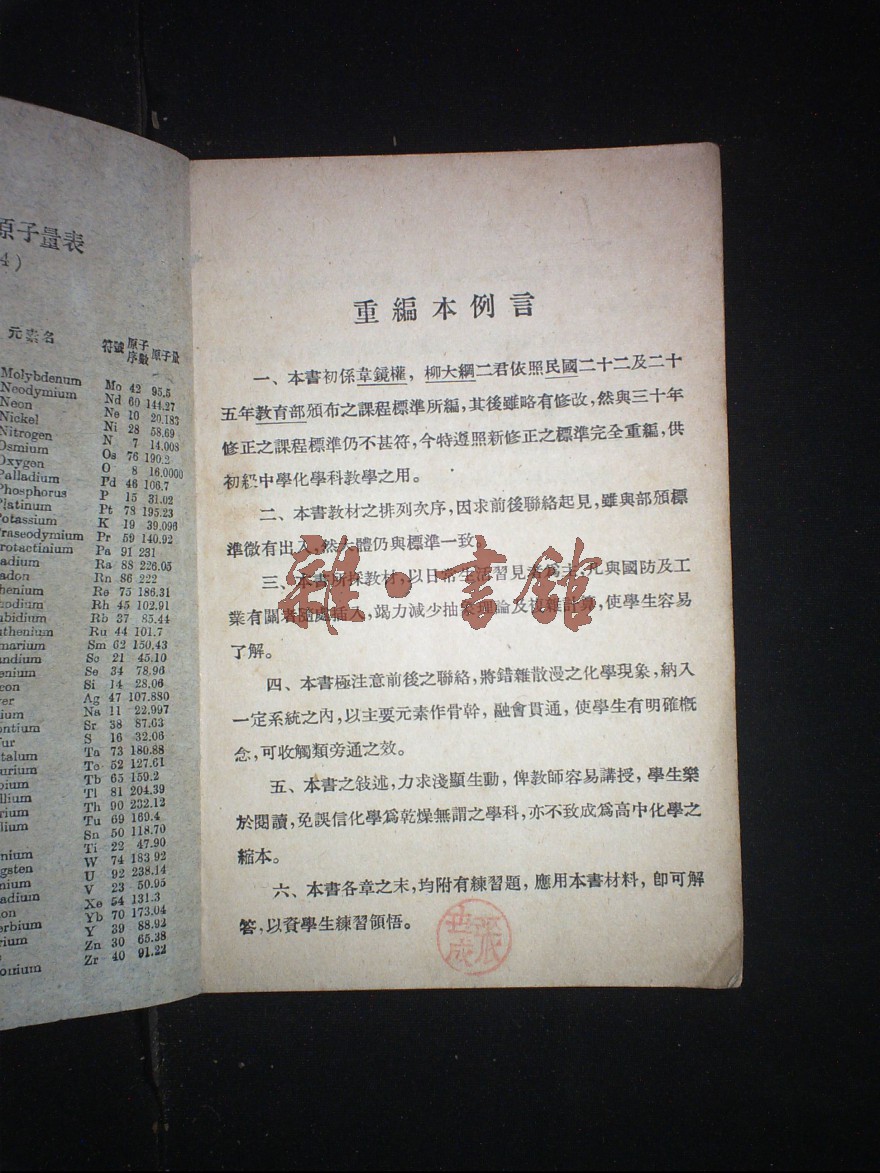 原子量表
4)
元素名 符號 原子序數 原子量
Molybdenum Mo 42 95.5
Neodymium Nd 60 144.27
Neon Ne 10 20.183
Nickel Ni 28 58.69
Nitrogen N 7 14.008
Osmium Os 76 190.2
Oxygen O 8 16.0000
Palladium Pd 46 106.7
Phosphorus P 15 31.02
Platinum Pt 78 195.23
Potassium K 19 39.096
Praseodymium Pr 59 140.92
Protactinium Pa 91 231
adium Ra 88 226.05
adon Rn 86 222
henium Re 75 186.31
hodium Rh 45 102.91
ubidium Rb 37 85.44
uthenium Ru 44 101.7
marium Sm 62 150.43
andium Sc 21 45.10
enium Se 34 78.96
icon Si 14 28.06
er Ag 47 107.880
ium Na 11 22.997
ontium Sr 38 87.63
ur S 16 32.06
talum Ta 73 180.88
urium Te 52 127.61
bium Tb 65 159.2
llium Tl 81 204.39
rium Th 90 232.12
lium Tu 69 169.4
Sn 50 118.70
nium Ti 22 47.90
gsten W 74 183.92
nium U 92 238.14
adium V 23 50.95
on Xe 54 131.3
erbium Yb 70 173.04
rium Y 39 88.92
Zn 30 65.38
onium Zr 40 91.22
重編本例言
一、本書初係韋鏡權，柳大綱二君依照民國二十二及二十
五年教育部頒布之課程標準所編，其後雖略有修改，然與三十年
修正之課程標準仍不甚符，今特遵照新修正之標準完全重編，供
初級中學化學科教學之用。
二、本書教材之排列次序，因求前後聯絡起見，雖與部頒標
準微有出入，然大體仍與標準一致。
三、本書所採教材，以日常生活習見者為主，凡與國防及工
業有關者隨處插入，竭力減少抽象理論及複雜計算，使學生容易
了解。
四、本書極注意前後之聯絡，將錯雜散漫之化學現象，納入
一定系統之內，以主要元素作骨幹，融會貫通，使學生有明確概
念，可收觸類旁通之效。
五、本書之敍述，力求淺顯生動，俾教師容易講授，學生樂
於閱讀，免誤信化學爲乾燥無謂之學科，亦不致成爲高中化學之
縮本。
六、本書各章之末，均附有練習題，應用本書材料，卽可解
答，以資學生練習領悟。
雜·書館